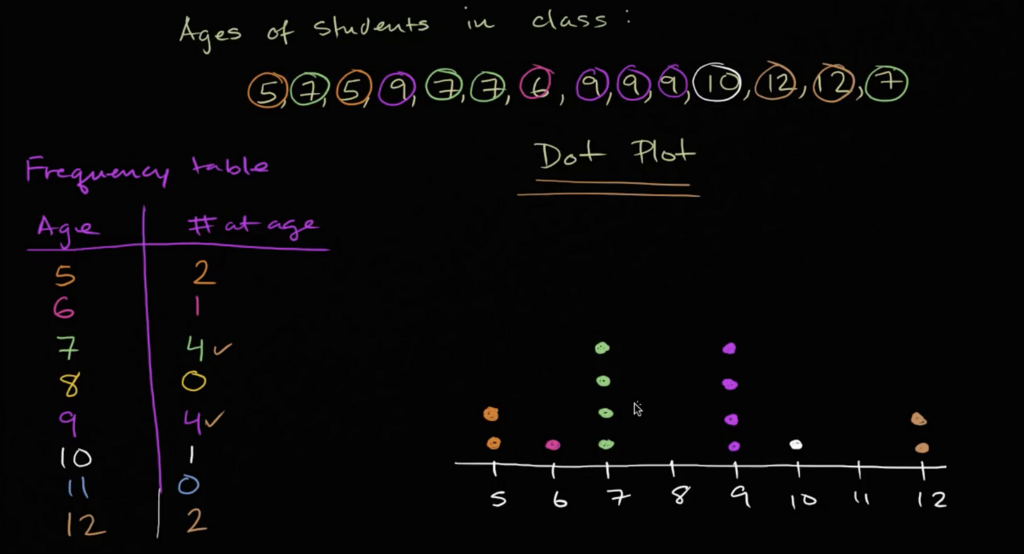 Ages of students in class:
5, 7, 5, 9, 7, 7, 6, 9, 9, 9, 10, 12, 12, 7
Dot Plot
Frequency table
Age # at age
5 2
6 1
7 4 ✓
8 0
9 4 ✓
10 1
11 0
12 2
5 6 7 8 9 10 11 12